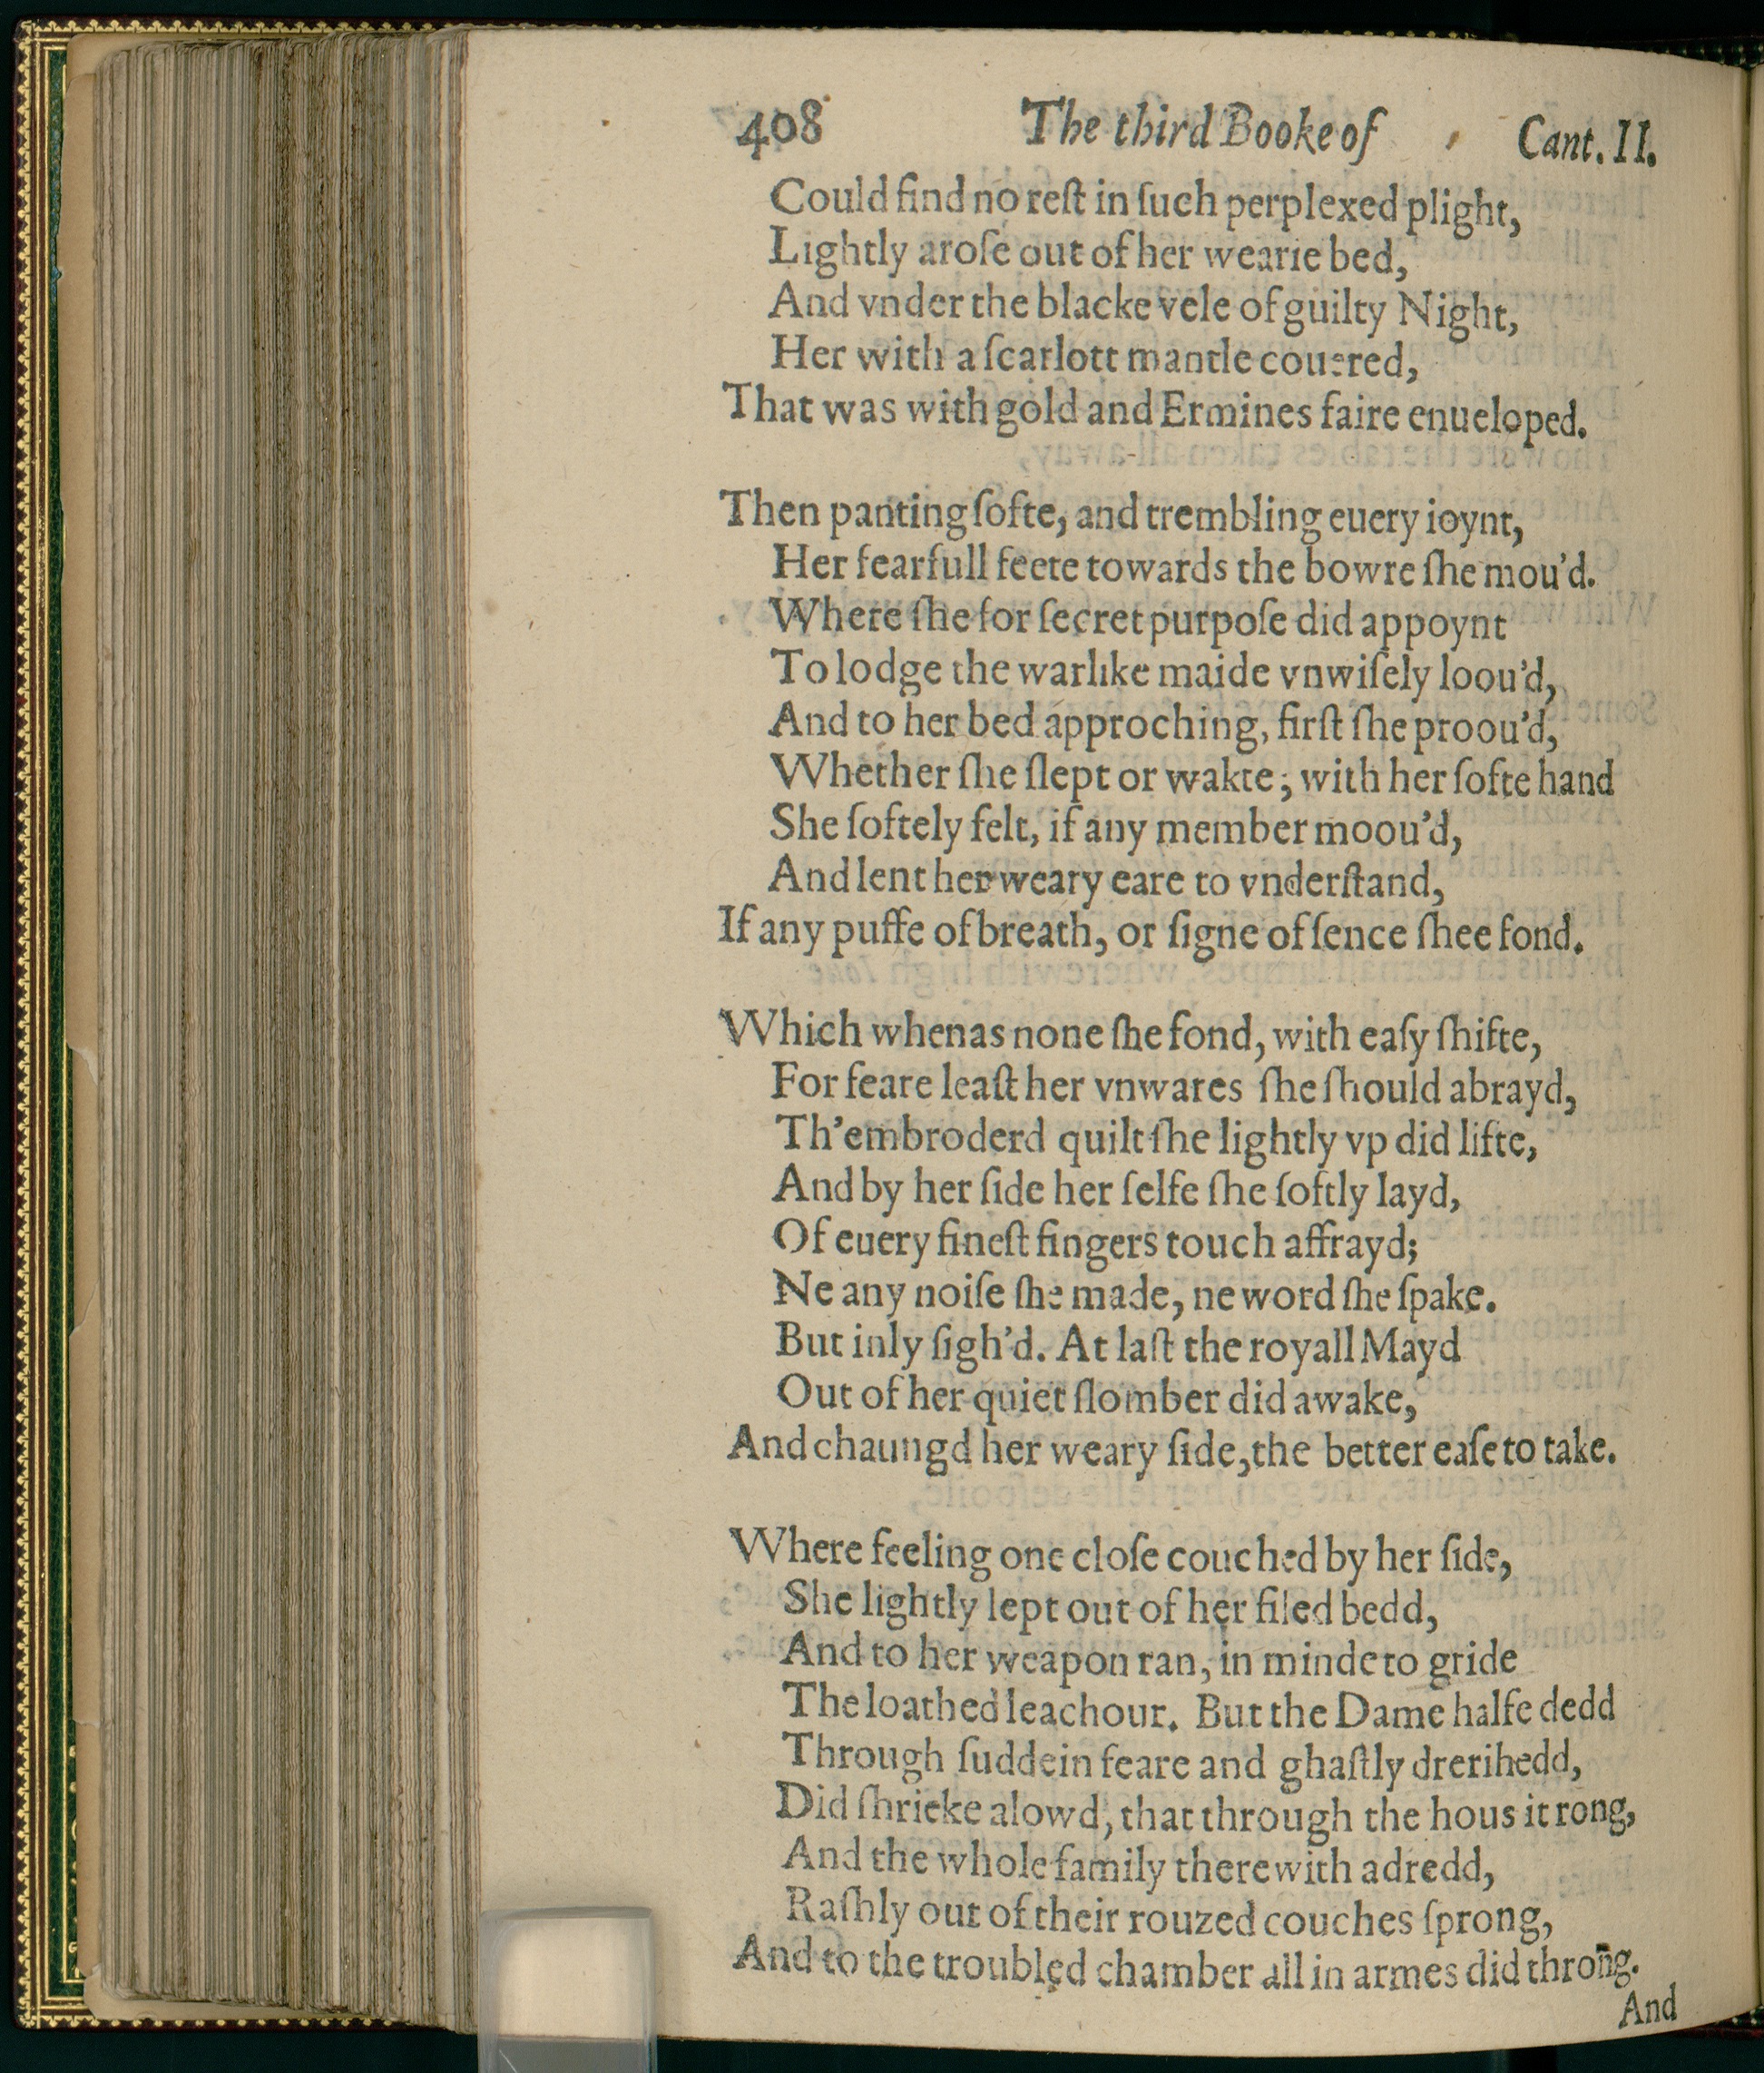 408 The third Booke of Cant. II.
Could find no reſt in ſuch perplexed plight,
Lightly aroſe out of her wearie bed,
And vnder the blacke vele of guilty Night,
Her with a ſcarlott mantle couered,
That was with gold and Ermines faire enueloped.
Then panting ſofte, and trembling euery ioynt,
Her fearfull feete towards the bowre ſhe mou'd.
Where ſhe for ſecret purpoſe did appoynt
To lodge the warlike maide vnwiſely loou'd,
And to her bed approching, firſt ſhe proou'd,
Whether ſhe ſlept or wakte; with her ſofte hand
She ſoftely felt, if any member moou'd,
And lent her weary eare to vnderſtand,
If any puffe of breath, or ſigne of ſence ſhee fond.
Which whenas none ſhe fond, with eaſy ſhifte,
For feare leaſt her vnwares ſhe ſhould abrayd,
Th'embroderd quilt ſhe lightly vp did lifte,
And by her ſide her ſelfe ſhe ſoftly layd,
Of euery fineſt fingers touch affrayd;
Ne any noiſe ſhe made, ne word ſhe ſpake.
But inly ſigh'd. At laſt the royall Mayd
Out of her quiet ſlomber did awake,
And chaungd her weary ſide, the better eaſe to take.
Where feeling one cloſe couched by her ſide,
She lightly lept out of her filed bedd,
And to her weapon ran, in minde to gride
The loathed leachour. But the Dame halfe dedd
Through ſuddein feare and ghaſtly drerihedd,
Did ſhrieke alowd, that through the hous it rong,
And the whole family therewith adredd,
Raſhly out of their rouzed couches ſprong,
And to the troubled chamber all in armes did throng.
And